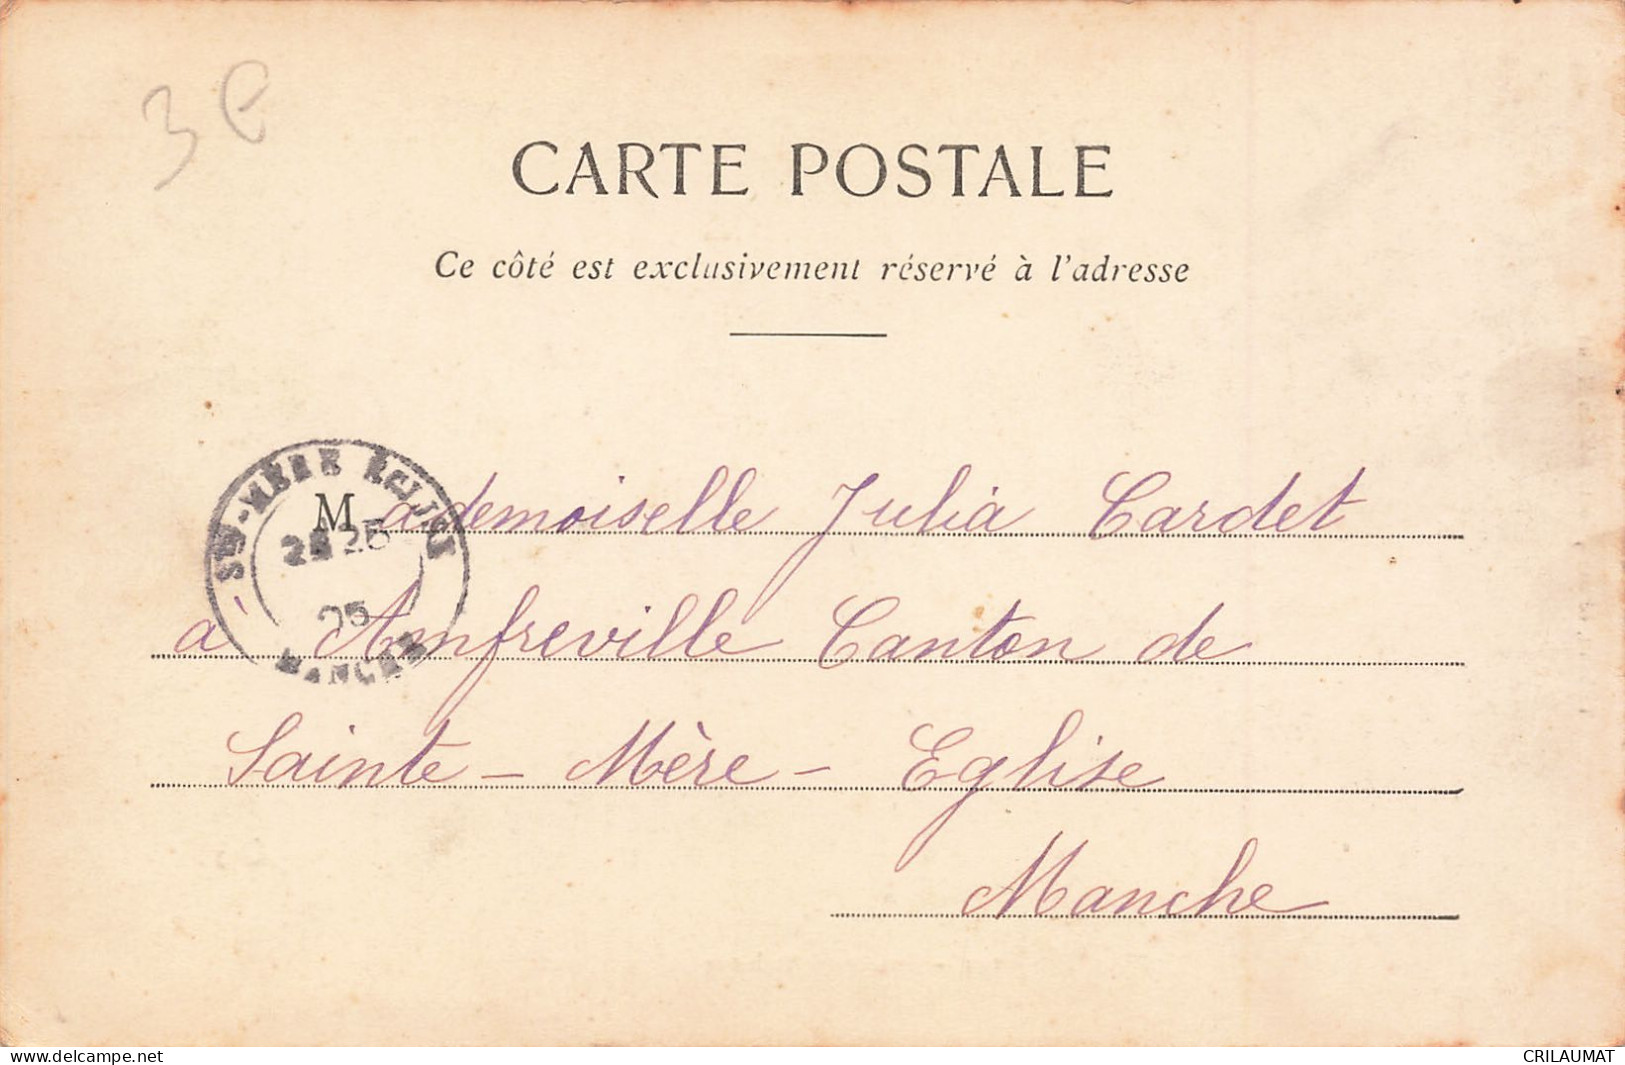 3€
CARTE POSTALE
Ce côté est exclusivement réservé à l'adresse
Mademoiselle Julia Cardet
à Amfreville Canton de
Sainte - Mère - Eglise
Manche
STE-MÈRE ÉGLISE
25
05
MANCHE
www.delcampe.net
CRILAUMAT